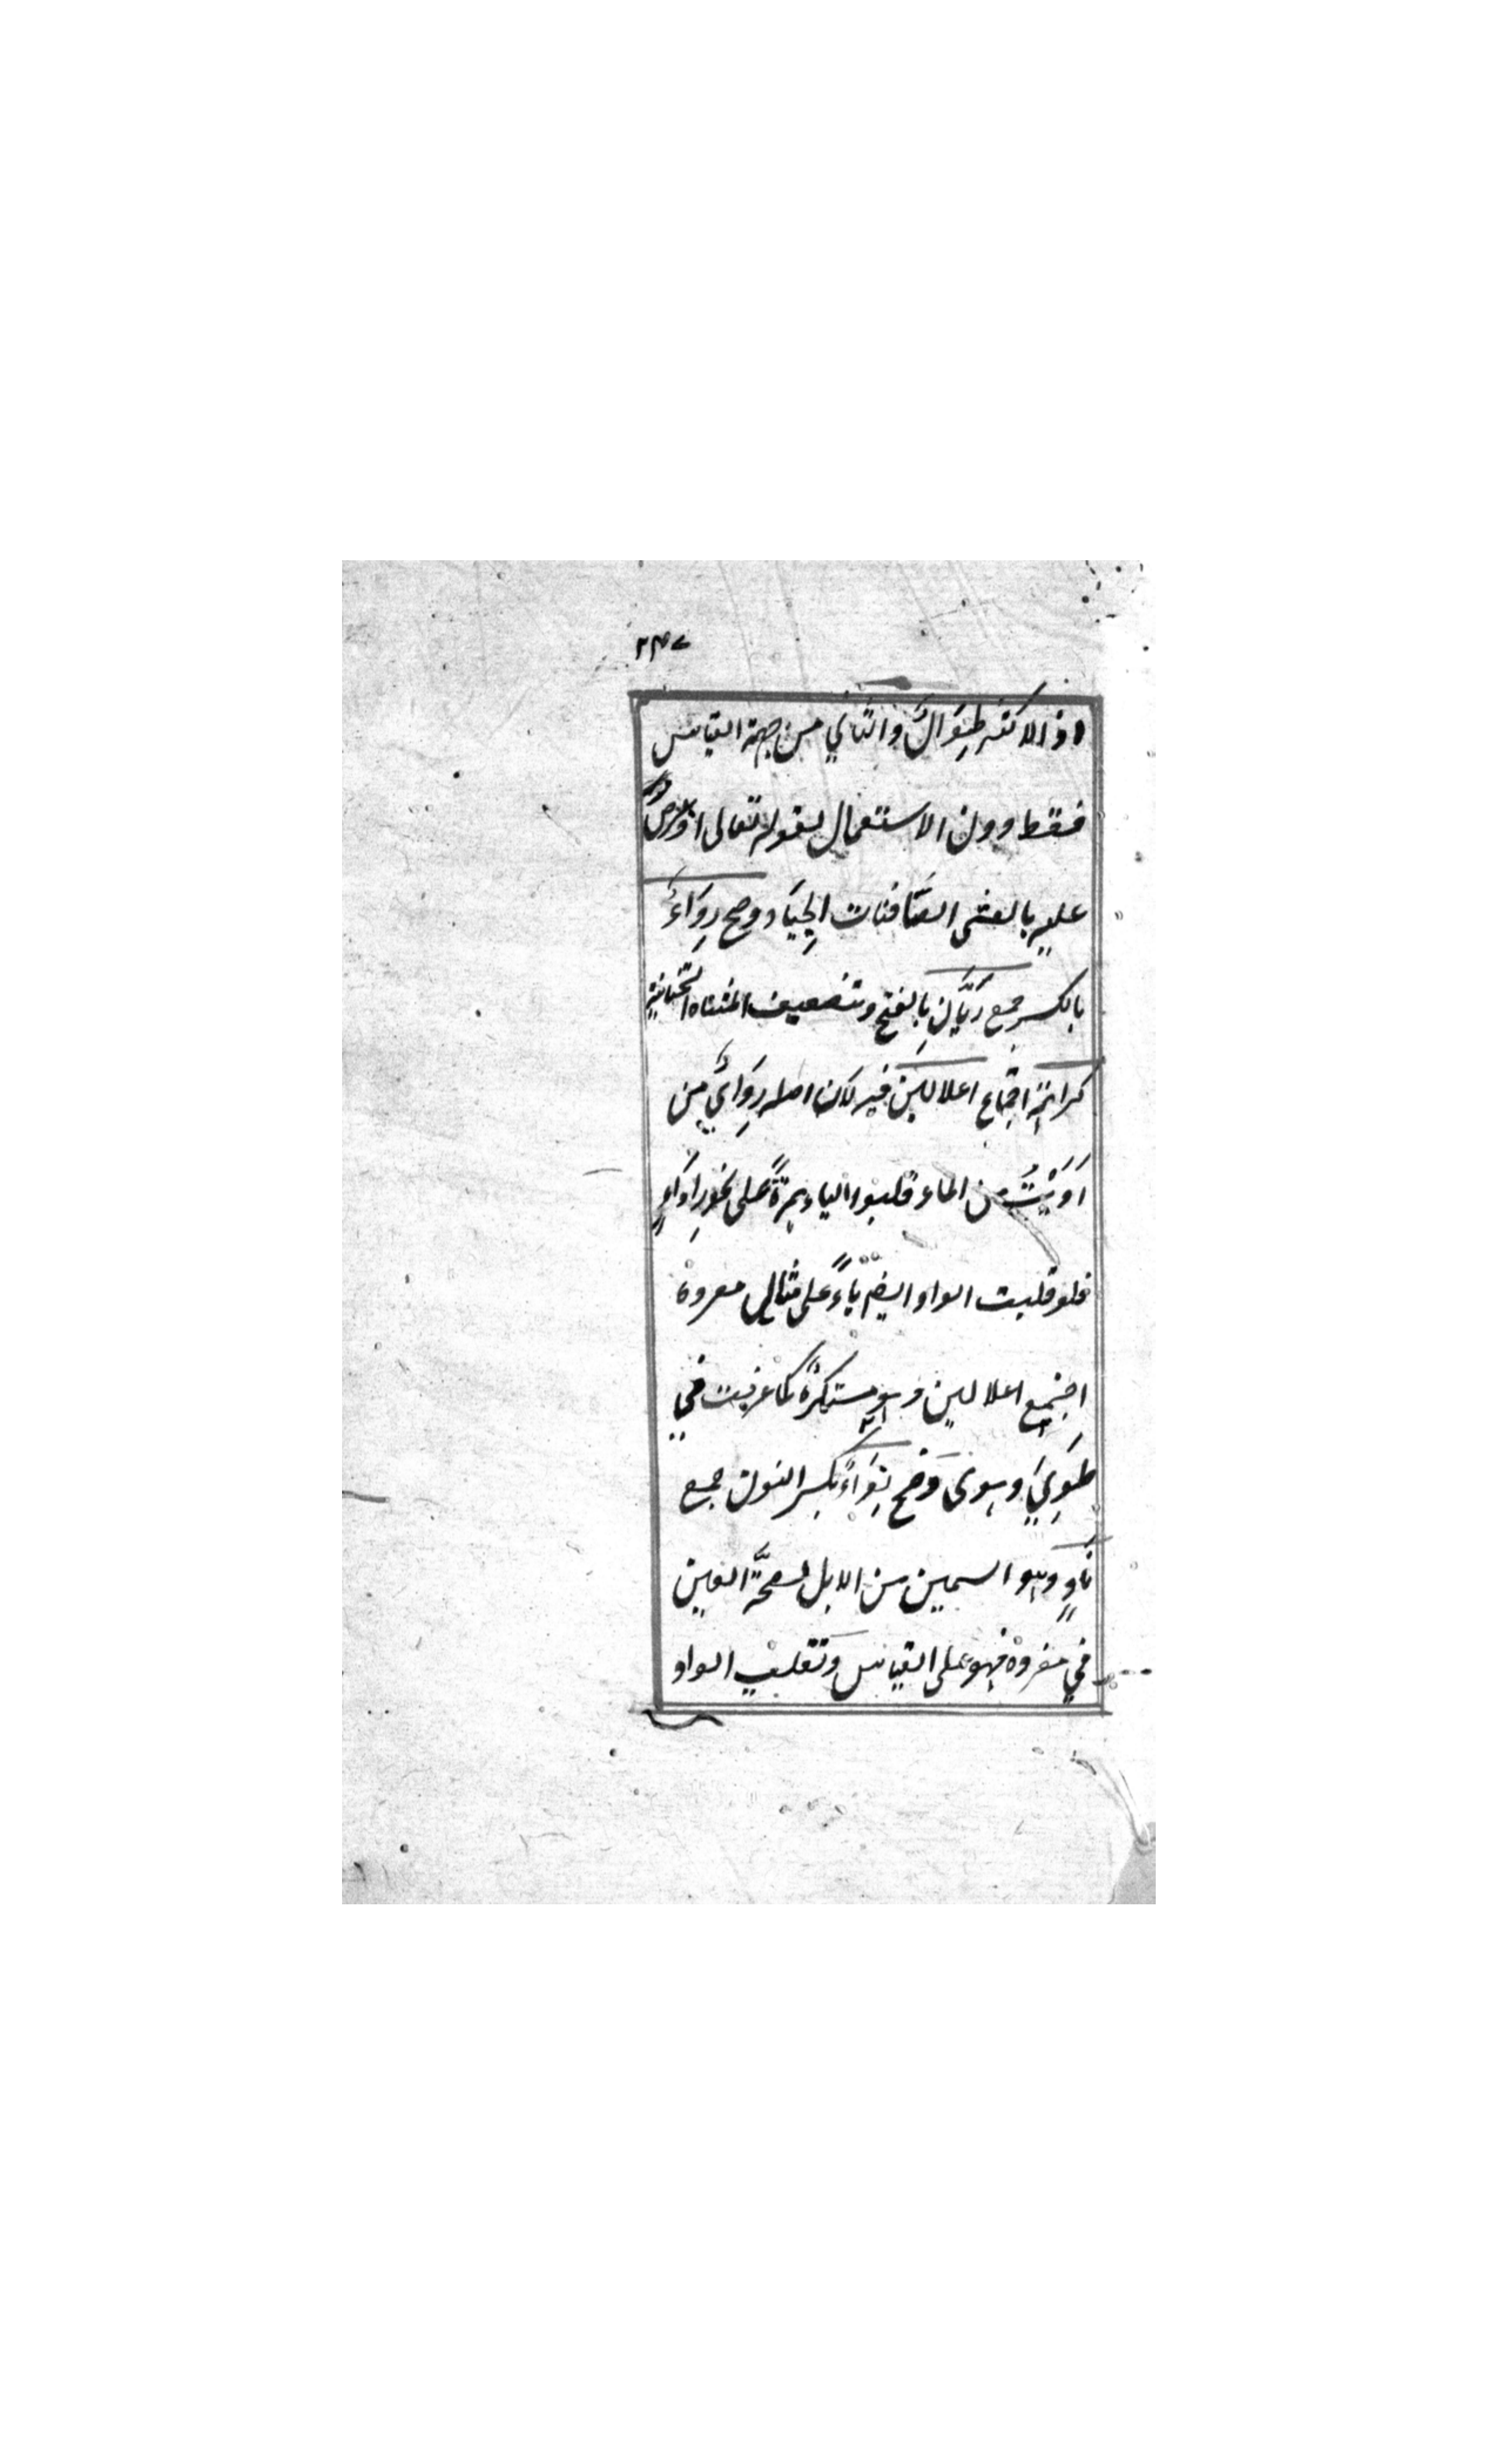 ٢٣٧
اذ الاكثر طِوَالٌ والثاني من جهة القياس
فقط دون الاستعمال لقوله تعالى اذ عرض
عليه بالعشي الصَّافنات الجِيَاد وصح رِوَاءٌ
بالكسر جمع رَيَّان بِالفتح وتضعيف المثناه التحتانية
كراهة اجتماع اعلالين فيه لان اصله رِوَايٌ من
رَوَيْتُ من الماء قلبوا الياء همزةً على نحو
فلو قلبت الواو ايضًا ياءً على مثال مفرده
اجتمع اعلالين وهو مستكرهٌ كما عرفت في
طَوِيَ وهوى وَصح نِوَاءٌ بكسر النون جمع
نَاوٍ وهو السمين من الابل لصحَّة العين
في مفرده فهو على القياس وَتقلب الواو